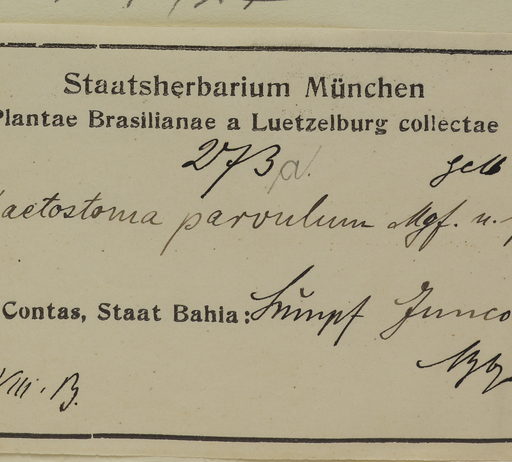 Staatsherbarium München
Plantae Brasilianae a Luetzelburg collectae
273 a. gelb
aetostoma parvulum Mgf. u.
Contas, Staat Bahia: Sumpf Junco
VIII. 13.